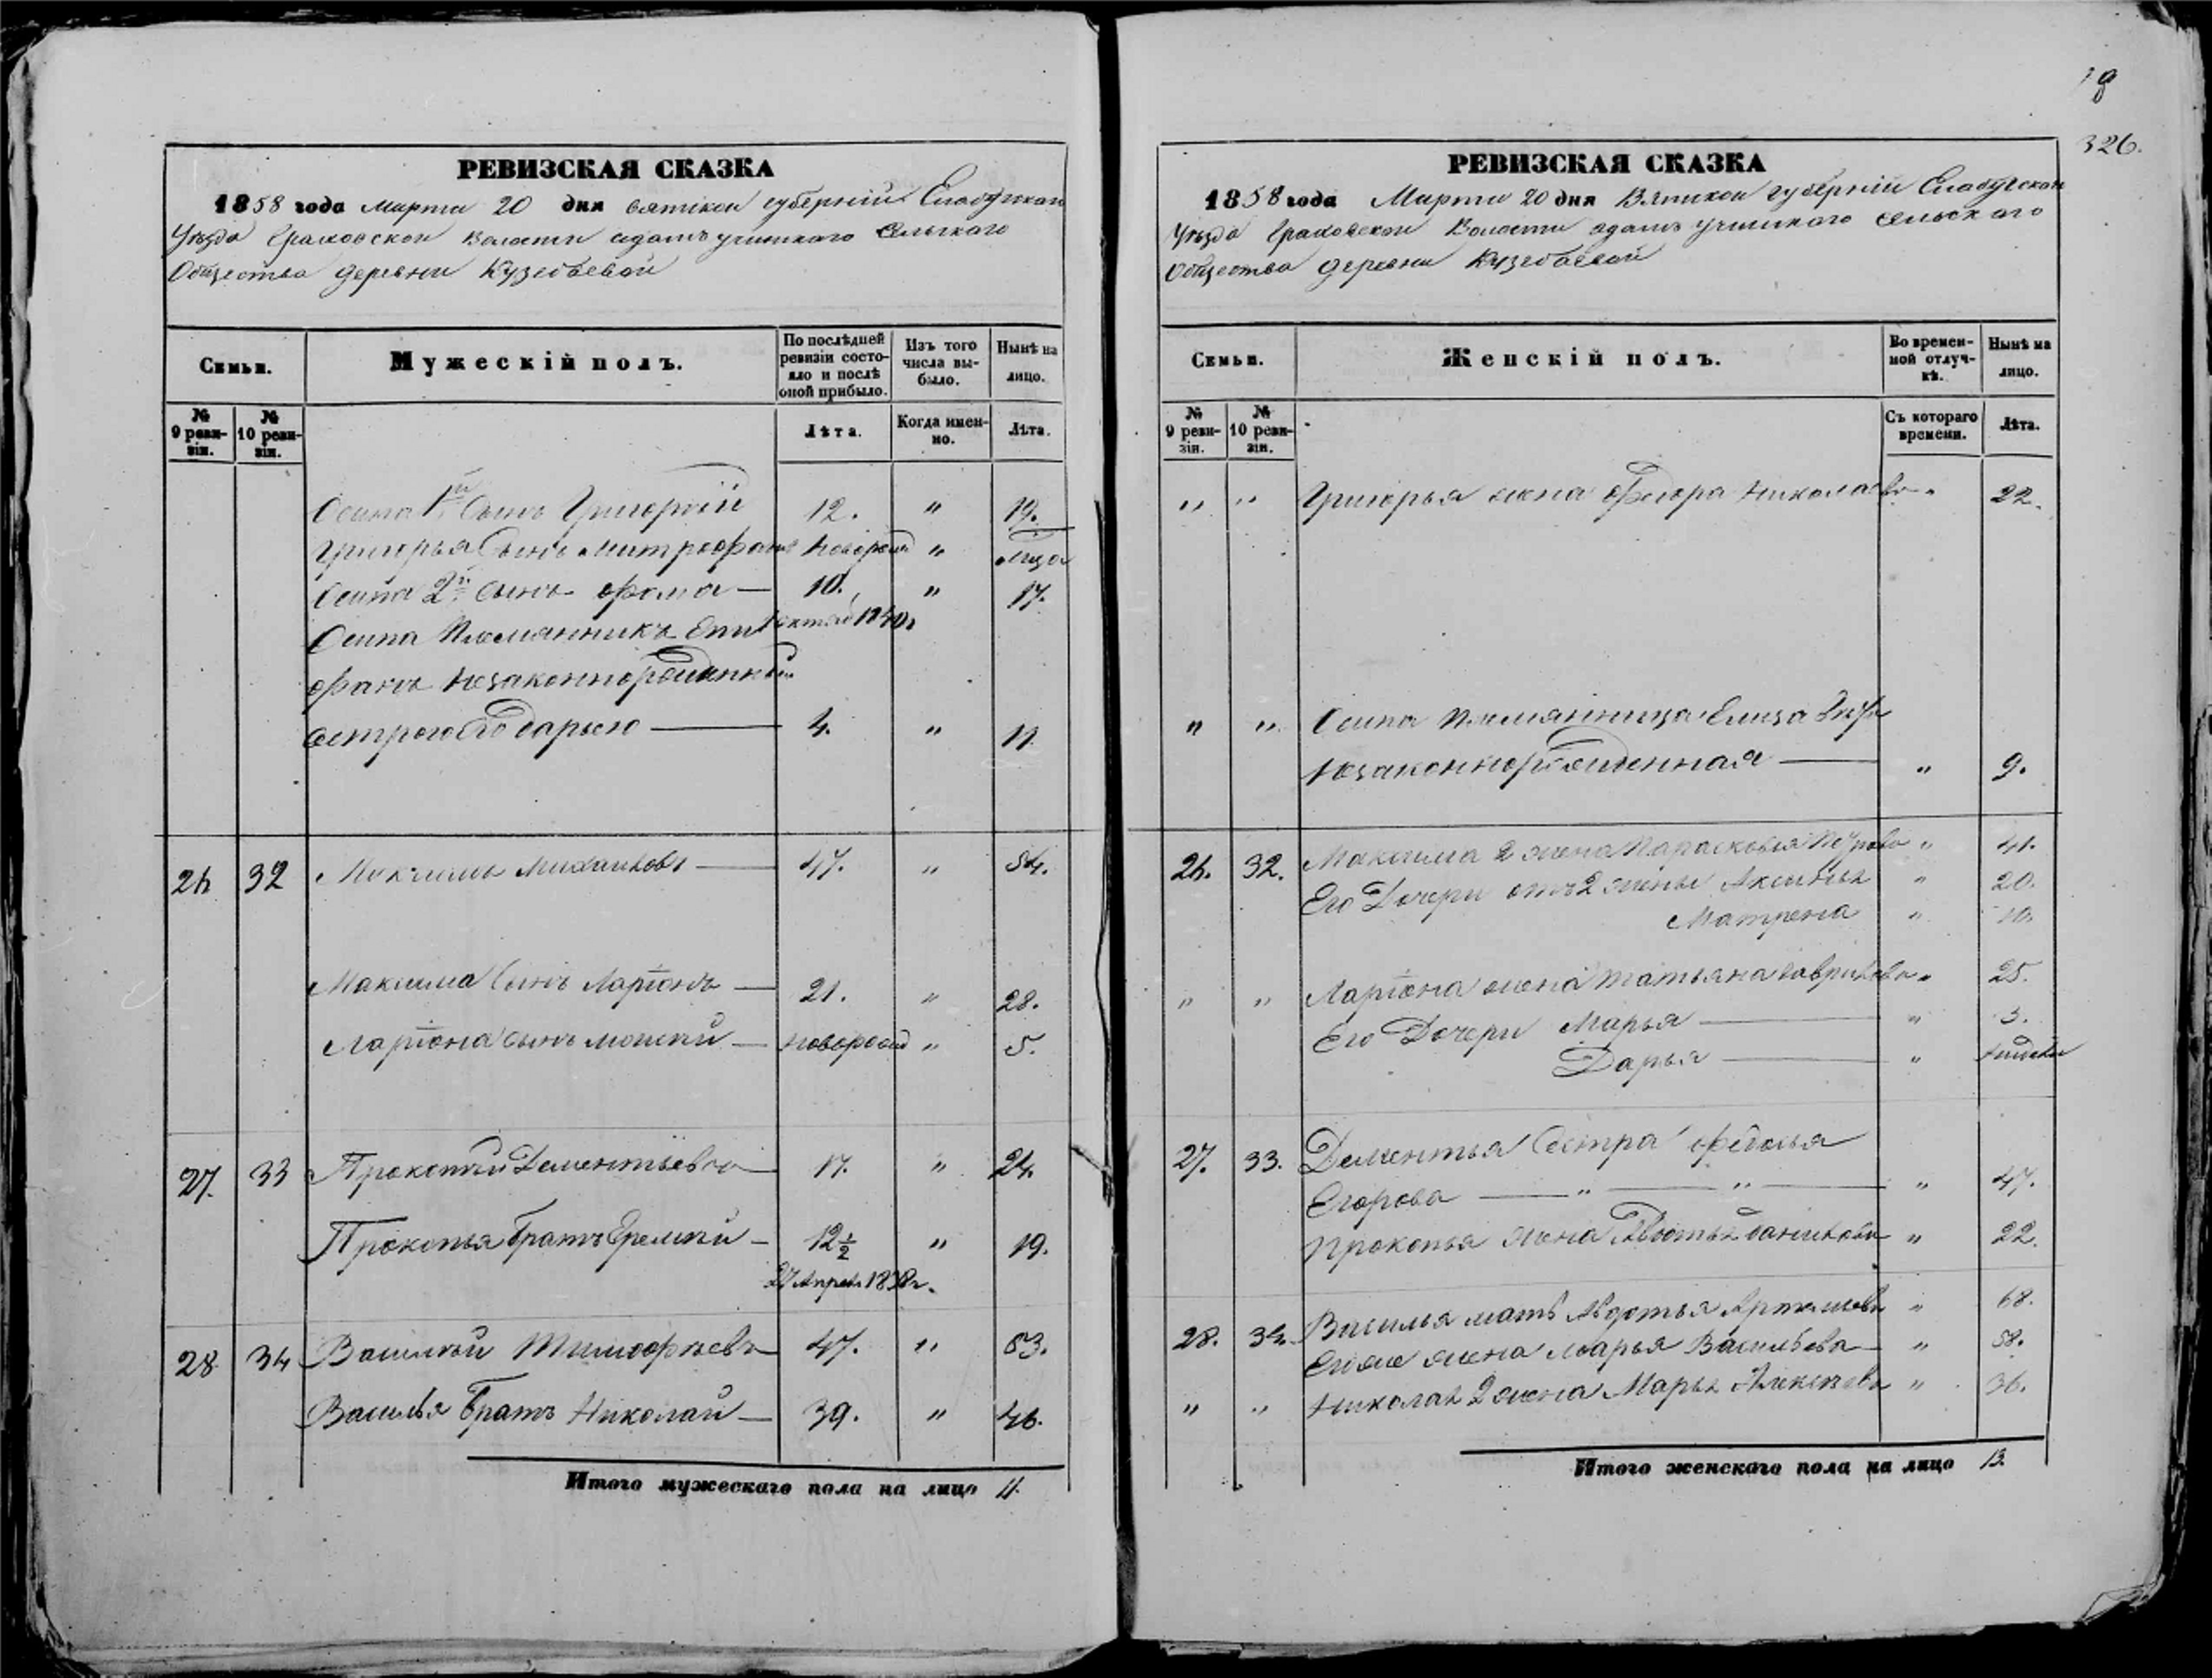 18
326.
РЕВИЗСКАЯ СКАЗКА
1858 года Марта 20 дня Вятской губерніи Елабужской
Уѣзда Граховской Волости Адамъ учинского Сельского
Общества деревни Кузебаевой
Семьи.
Мужескій полъ.
По послѣдней ревизіи состояло и послѣ оной прибыло.
Изъ того числа выбыло.
Нынѣ на лицо.
№ 9 ревизіи.
№ 10 ревизіи.
Лѣта.
Когда именно.
Лѣта.
Осипа 1й Сынъ Григорій 12. " 19.
Григорья Сынъ Митрофанъ новорожд "
Осипа 2й Сынъ Фома — 10. " 17.
Осипа Племянникъ Епи
фанъ Незаконнорожденный
сестрою его Дарьею — 4. " 11
26 32 Максимъ Михайловъ — 47. " 54.
Максима Сынъ Ларіонъ — 21. " 28.
Ларіона сынъ Моисей — новорожд " 5.
27. 33 Прокопей Дементьевъ — 17. " 24.
Прокопья Братъ Еремей — 12½ " 19.
28 34 Василей Тимофѣевъ 47. " 53.
Василья Братъ Николай — 39. " 46.
Итого мужескаго пола на лицо 11.
РЕВИЗСКАЯ СКАЗКА
1858 года Марта 20 дня Вятской губерніи Елабужской
Уѣзда Граховской Волости Адамъ учинского Сельского
Общества деревни Кузебаевой
Семьи.
Женскій полъ.
Во временной отлучкѣ.
Нынѣ на лицо.
№ 9 ревизіи.
№ 10 ревизіи.
Съ котораго времени.
Лѣта.
" " Григорья жена Федора Николаева " 22.
" " Осипа племянница Елиза
Незаконнорожденная — " 9.
26. 32. Максима 2 жена Парасковья Петрова " 41.
Его Дочери отъ 2 жены Аксинья " 20.
Матрена " 10.
" " Ларіона жена Татьяна Гаврилова " 25.
Его Дочери Марья — " 3.
Дарья — "
27. 33. Дементья Сестра Федосья
Егорова — " — " — " 47.
Прокопья жена Данилова " 22.
28. 34. Василья мать Авдотья Артемьева " 68.
Его же жена Марья Васильева — " 58.
" " Николая 2 жена Марья Алексѣева " 36.
Итого женскаго пола на лицо 13.